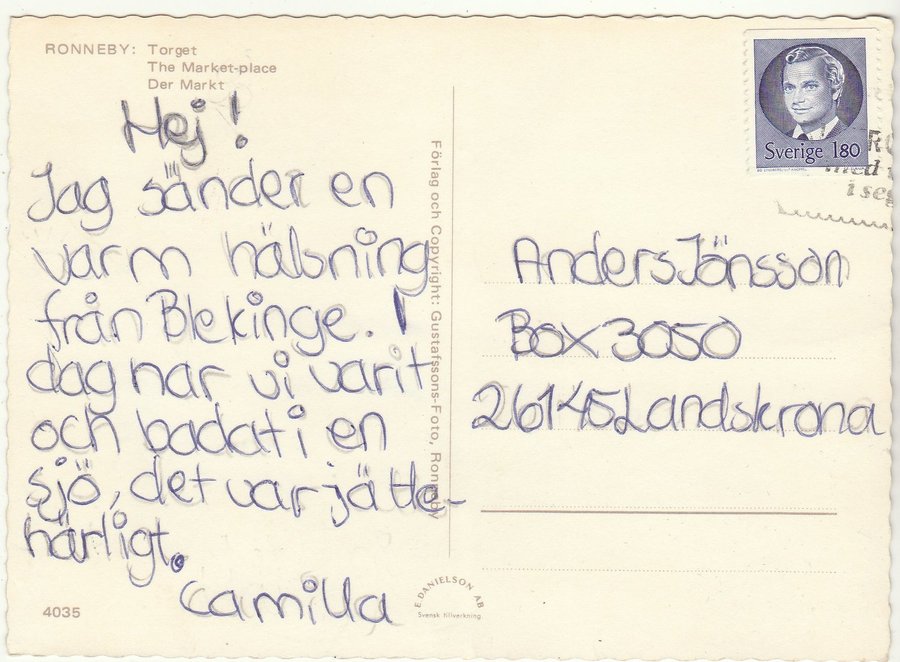 RONNEBY: Torget
The Market-place
Der Markt
Hej!
Jag sänder en
varm hälsning
från Blekinge. I
dag har vi varit
och badat i en
sjö, det var jätte-
härligt.
Camilla
4035
Förlag och Copyright: Gustafssons-Foto, Ronneby
E DANIELSON AB
Svensk tillverkning
Sverige 180
med
i
Anders Jönsson
Box 3050
26145 Landskrona